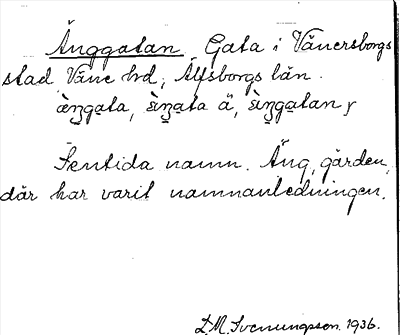 Änggatan. Gata i Vänersborgs
stad Väne hd, Älfsborgs län.
æŋgata, ä,
Sentida namn. Äng, gärden,
där har varit namnanledningen.
D.M. Svenungsson. 1936.